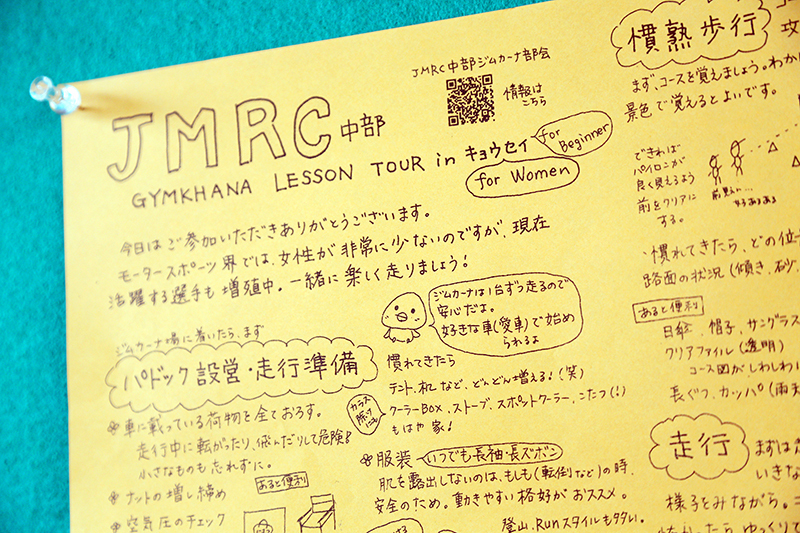 JMRC中部ジムカーナ部会
情報は
こちら
JMRC中部
GYMKHANA LESSON TOUR in キョウセイ
for Beginner
for Women
今日はご参加いただきありがとうございます。
モータースポーツ界では、女性が非常に少ないのですが、現在
活躍する選手も増殖中。一緒に楽しく走りましょう!
ジムカーナ場に着いたら、まず
パドック設営・走行準備
車に載っている荷物を全ておろす。
走行中に転がったり、飛んだりして危険!
小さなものも忘れずに。
ナットの増し締め
空気圧のチェック
あると便利
ジムカーナは1台ずつ走るので
安心だよ。
好きな車(愛車)で始め
られるよ
慣れてきたら
テント、机など、どんどん増える!(笑)
クーラーBOX、ストーブ、スポットクーラー、こたつ(!)
もはや家!
カラス
除け
服装
いつでも長袖・長ズボン
肌を露出しないのは、もしも(転倒など)の時、
安全のため。動きやすい格好がおススメ。
登山、Runスタイルも
慣熟歩行
まず、コースを覚えましょう。わか
景色で覚えるとよいです。
できれば
パイロンが
良く見えるよう
前をクリアに
する。
慣れてきたら、どの位
路面の状況(傾き、砂、
あると便利
日傘、帽子、サングラス
クリアファイル(透明)
コース図がしわしわに
長ぐつ、カッパ(雨天
走行
まずは
いきな
様子をみながら。コ
たら、ゆっくりで